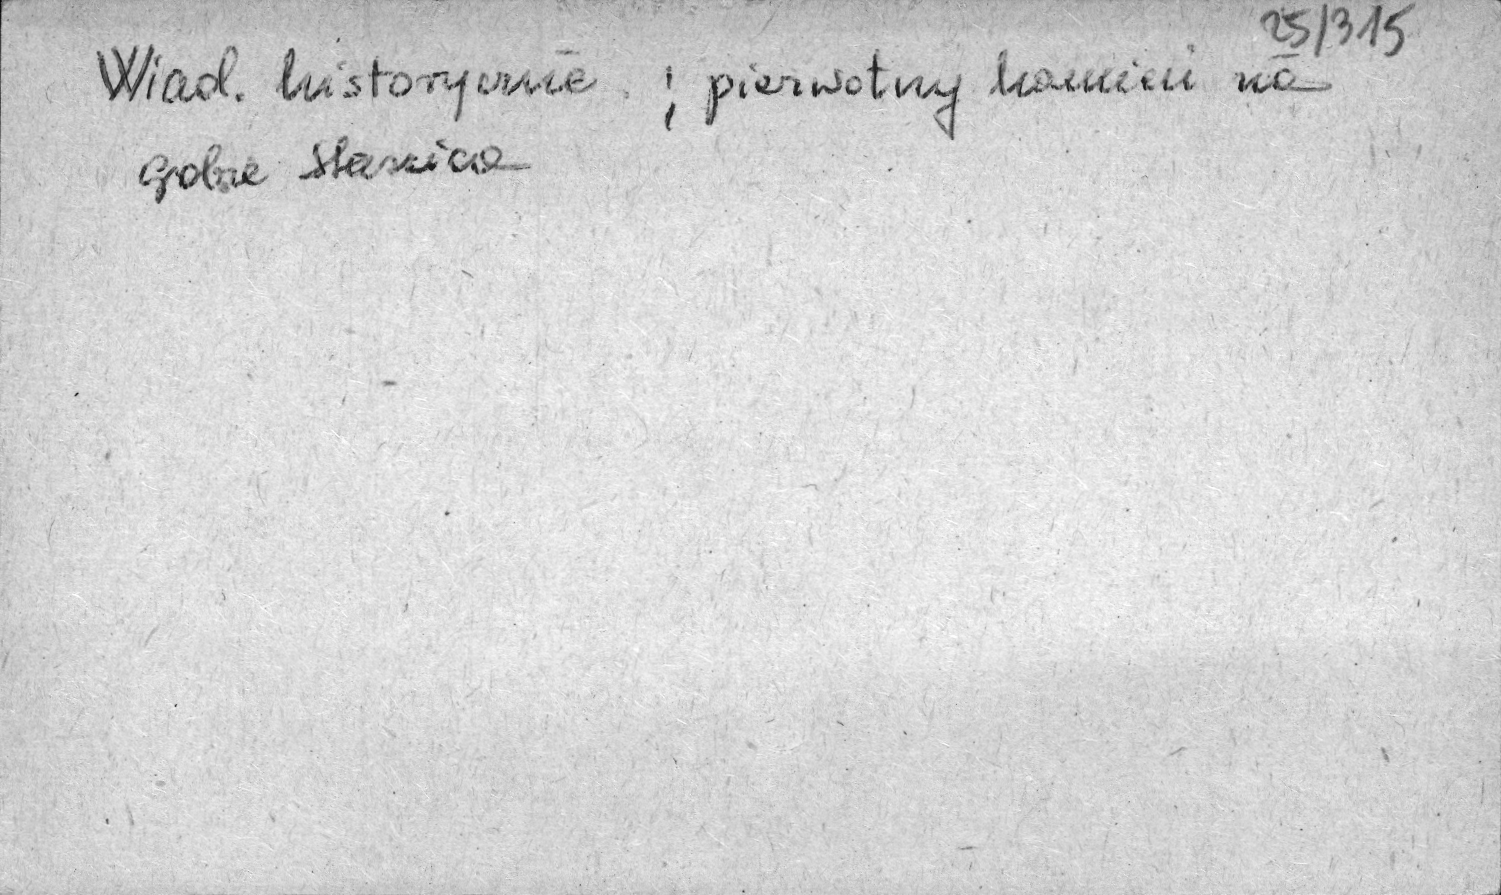 25/315
Wiad. historyczne ; pierwotny kamień na
grobie Staszica